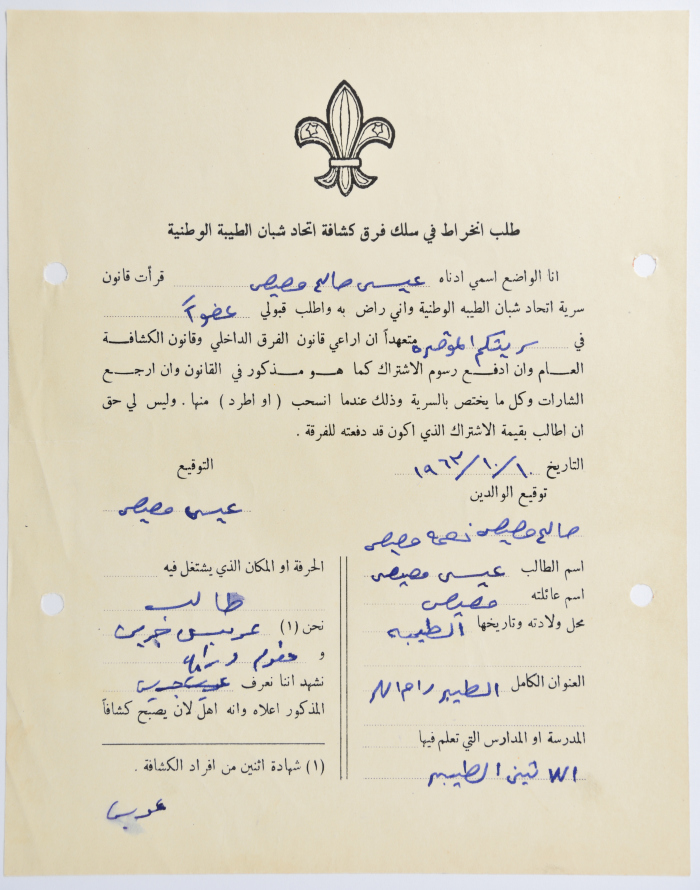 طلب انخراط في سلك فرق كشافة اتحاد شبان الطيبة الوطنية
انا الواضع اسمي ادناه عيسى صالح مصيص قرأت قانون
سرية اتحاد شبان الطيبه الوطنية واني راض به واطلب قبولي عضواً
في سريتكم الموقره متعهداً ان اراعي قانون الفرق الداخلي وقانون الكشافة
العام وان ادفع رسوم الاشتراك كما هو مذكور في القانون وان ارجع
الشارات وكل ما يختص بالسرية وذلك عندما انسحب ( او اطرد ) منها . وليس لي حق
ان اطالب بقيمة الاشتراك الذي اكون قد دفعته للفرقة .
التاريخ ١٠/١٠/١٩٦٢
التوقيع
توقيع الوالدين
عيسى مصيص
صالح مصيص نعمة مصيص
اسم الطالب عيسى مصيص
اسم عائلته مصيص
محل ولادته وتاريخها الطيبه
العنوان الكامل الطيبه رام الله
المدرسة او المدارس التي تعلم فيها
اللاتين الطيبه
الحرفة او المكان الذي يشتغل فيه
طالب
نحن (١)
و
نشهد اننا نعرف
المذكور اعلاه وانه اهل لان يصبح كشافاً
(١) شهادة اثنين من افراد الكشافة .